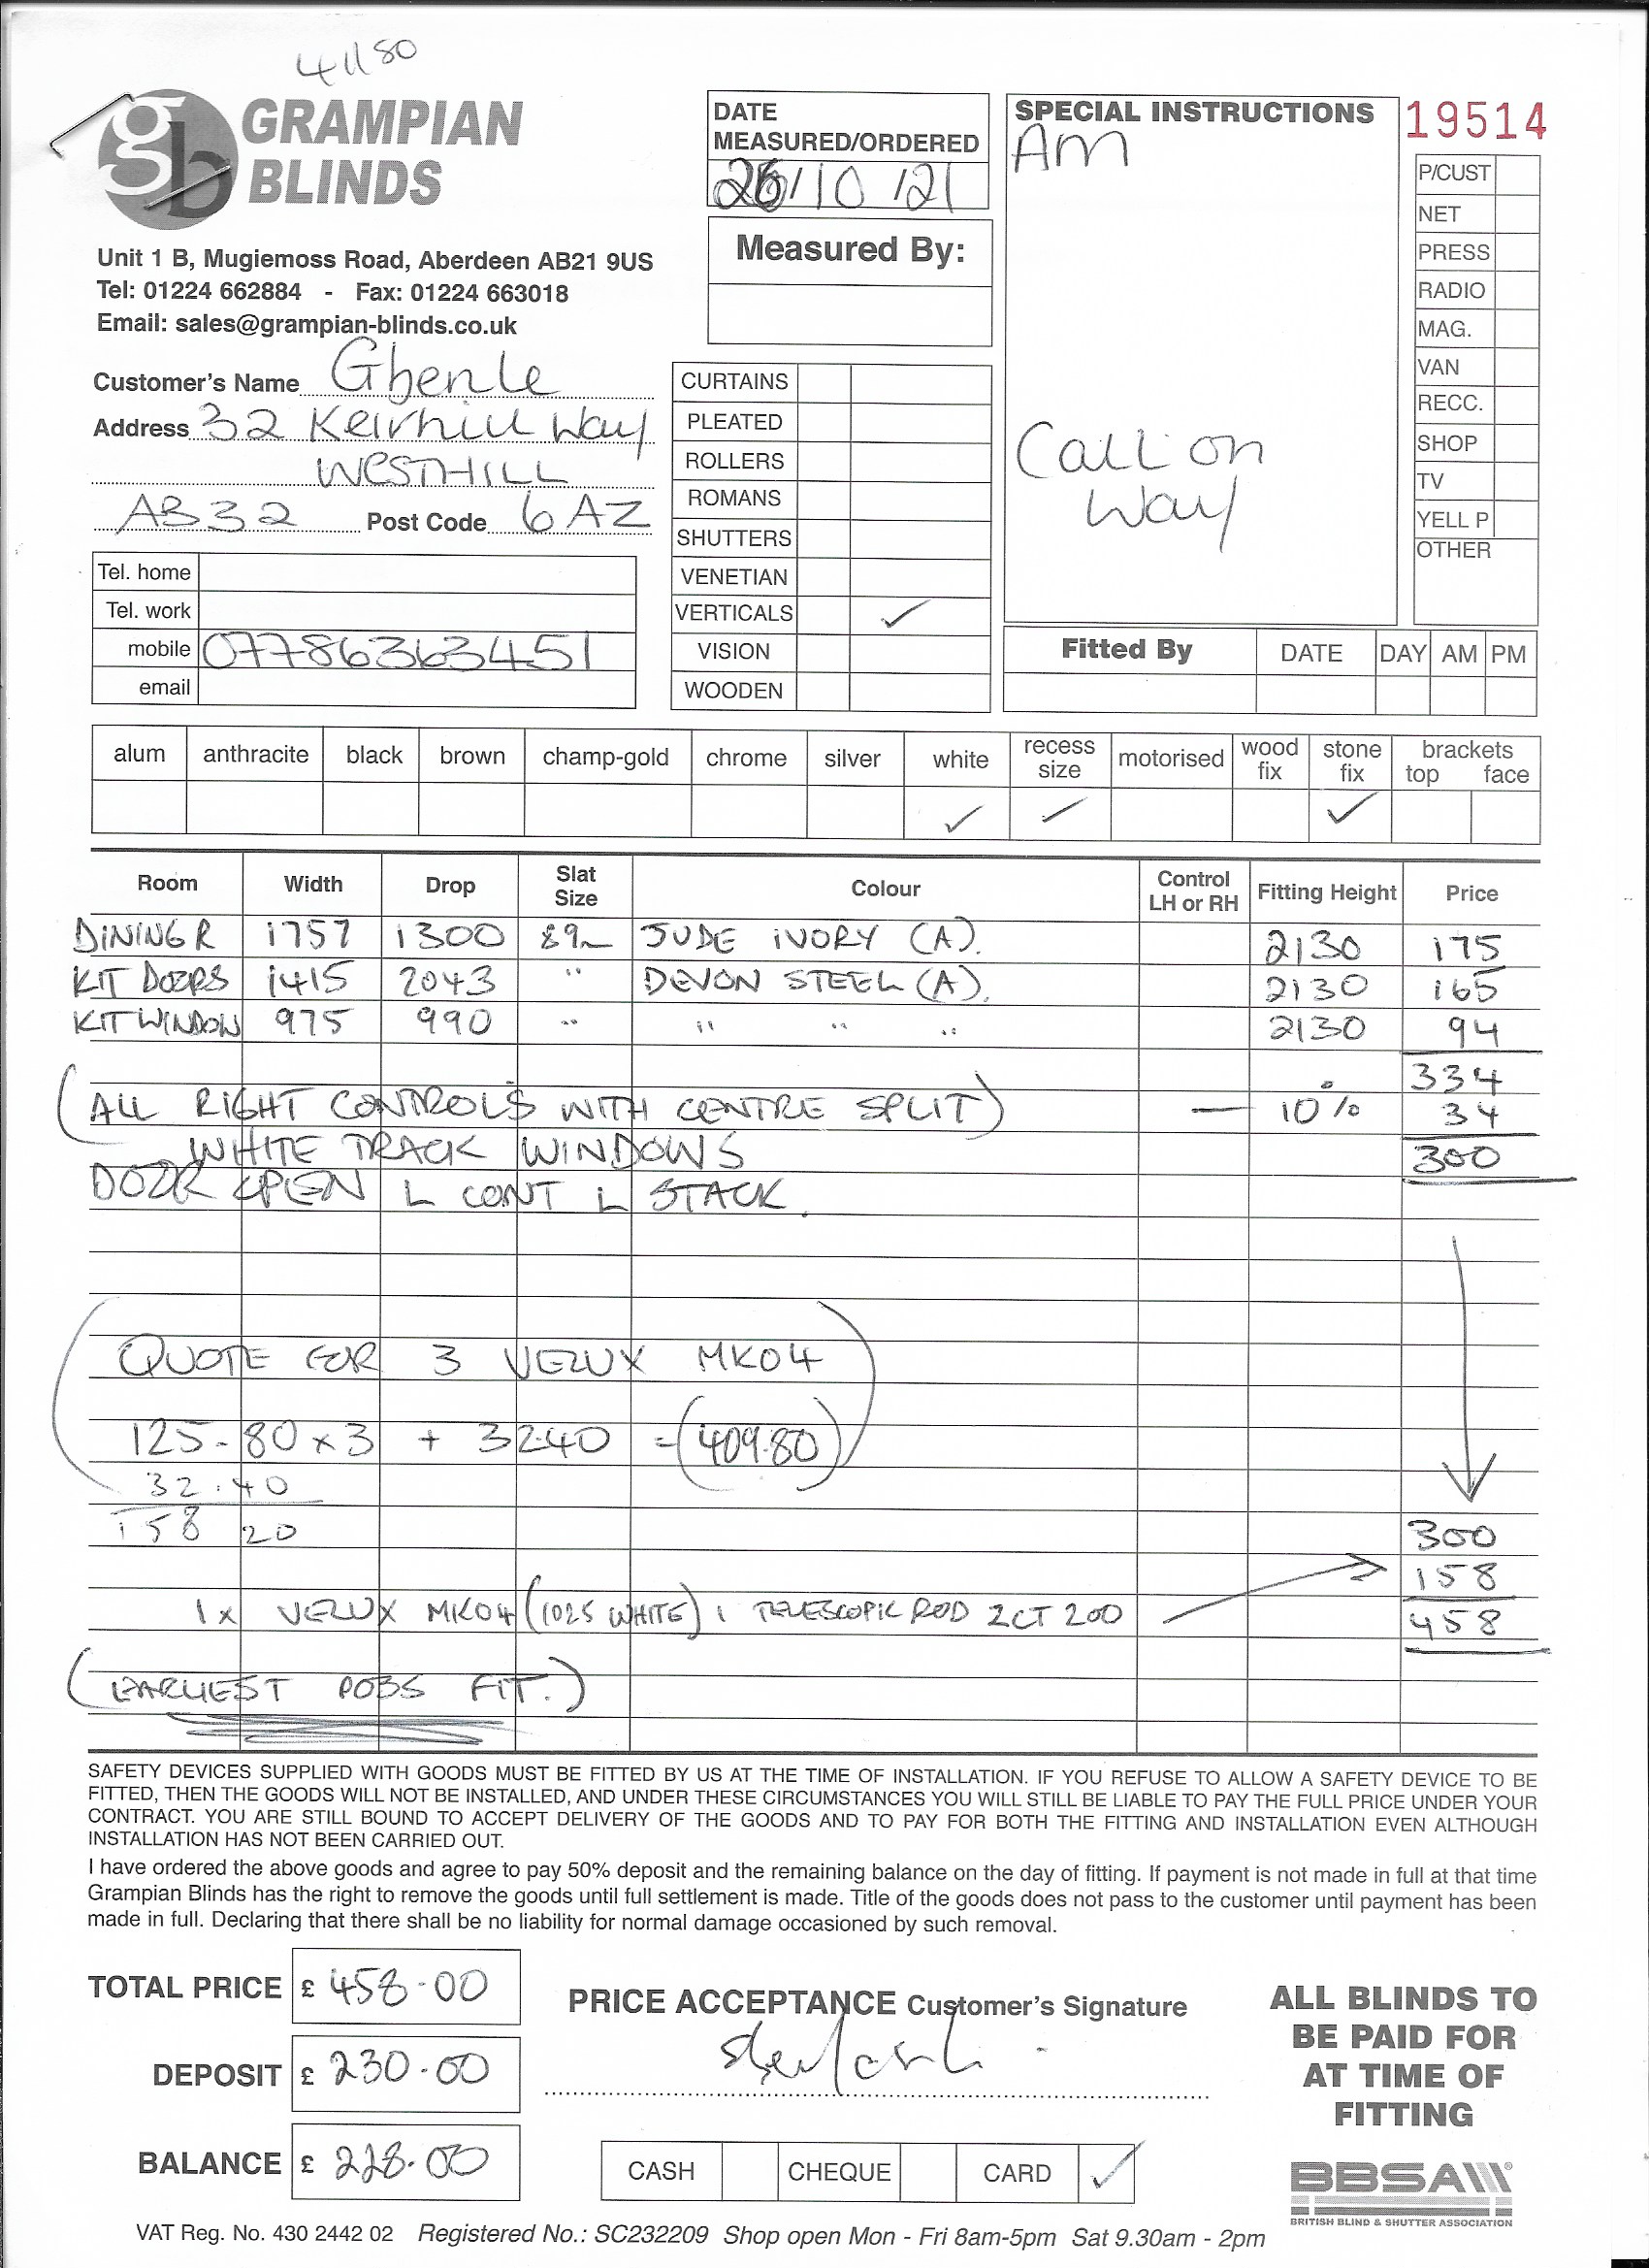 41180
gb GRAMPIAN
BLINDS
Unit 1 B, Mugiemoss Road, Aberdeen AB21 9US
Tel: 01224 662884 - Fax: 01224 663018
Email: sales@grampian-blinds.co.uk
Customer's Name Gbenle
Address 32 Keirhill Way
WESTHILL
AB32 Post Code 6AZ
Tel. home
Tel. work
mobile 07786363451
email
DATE
MEASURED/ORDERED
26/10/21
Measured By:
CURTAINS
PLEATED
ROLLERS
ROMANS
SHUTTERS
VENETIAN
VERTICALS ✓
VISION
WOODEN
SPECIAL INSTRUCTIONS
AM
Call on
Way
19514
P/CUST
NET
PRESS
RADIO
MAG.
VAN
RECC.
SHOP
TV
YELL P
OTHER
Fitted By DATE DAY AM PM
alum anthracite black brown champ-gold chrome silver white recess size motorised wood fix stone fix brackets top face
✓ ✓ ✓
Room Width Drop Slat Size Colour Control LH or RH Fitting Height Price
DINING R 1757 1300 89 JUDE IVORY (A). 2130 175
KIT DOORS 1415 2043 " DEVON STEEL (A). 2130 165
KIT WINDOW 975 990 " " " " 2130 94
334
(ALL RIGHT CONTROLS WITH CENTRE SPLIT) — 10% 34
WHITE TRACK WINDOWS 300
DOOR OPEN L CONT L STACK.
QUOTE FOR 3 VELUX MK04
125-80 x 3 + 3240 = (409.80)
32.40
158 20 300
158
1x VELUX MK04 (1025 WHITE) 1 TELESCOPIC ROD ZCT 200 458
(EARLIEST POSS FIT.)
SAFETY DEVICES SUPPLIED WITH GOODS MUST BE FITTED BY US AT THE TIME OF INSTALLATION. IF YOU REFUSE TO ALLOW A SAFETY DEVICE TO BE
FITTED, THEN THE GOODS WILL NOT BE INSTALLED, AND UNDER THESE CIRCUMSTANCES YOU WILL STILL BE LIABLE TO PAY THE FULL PRICE UNDER YOUR
CONTRACT. YOU ARE STILL BOUND TO ACCEPT DELIVERY OF THE GOODS AND TO PAY FOR BOTH THE FITTING AND INSTALLATION EVEN ALTHOUGH
INSTALLATION HAS NOT BEEN CARRIED OUT.
I have ordered the above goods and agree to pay 50% deposit and the remaining balance on the day of fitting. If payment is not made in full at that time
Grampian Blinds has the right to remove the goods until full settlement is made. Title of the goods does not pass to the customer until payment has been
made in full. Declaring that there shall be no liability for normal damage occasioned by such removal.
TOTAL PRICE £ 458.00
DEPOSIT £ 230.00
BALANCE £ 228.00
PRICE ACCEPTANCE Customer's Signature
CASH CHEQUE CARD ✓
ALL BLINDS TO
BE PAID FOR
AT TIME OF
FITTING
BBSA
BRITISH BLIND & SHUTTER ASSOCIATION
VAT Reg. No. 430 2442 02 Registered No.: SC232209 Shop open Mon - Fri 8am-5pm Sat 9.30am - 2pm